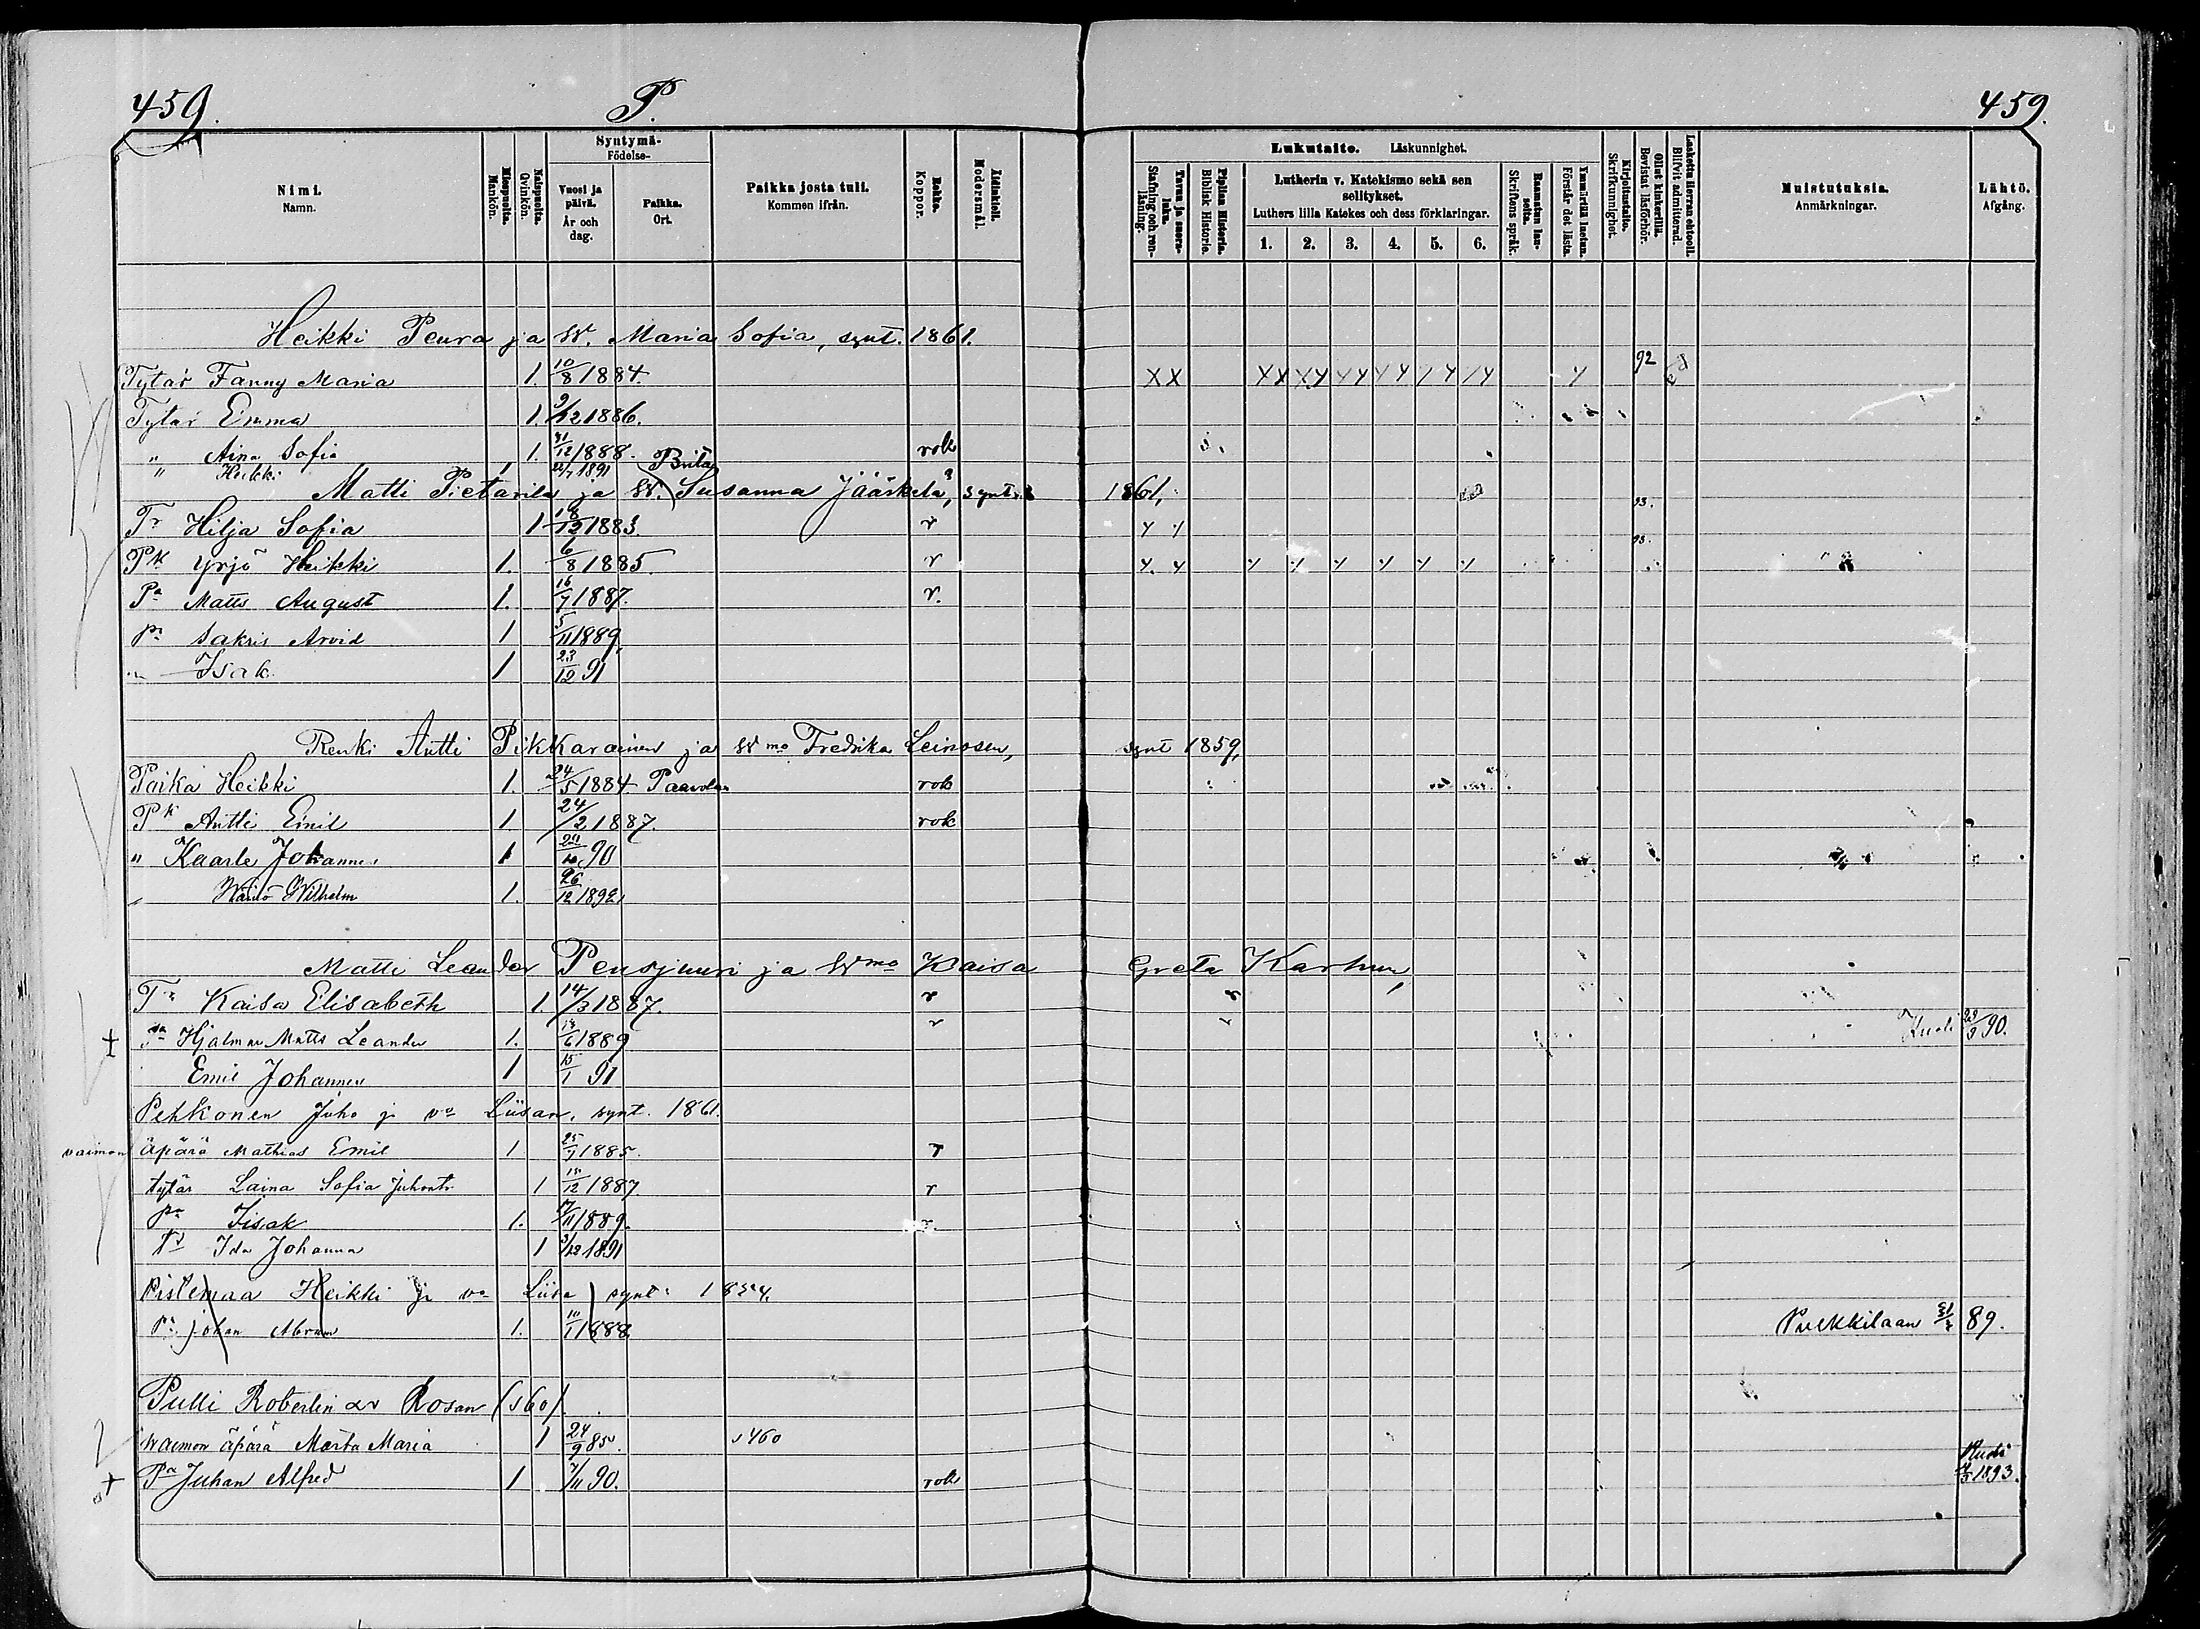 459. P. 459.
Nimi. Namn.
Miespuolta. Mankön.
Naispuolta. Qvinkön.
Syntymä- Födelse-
Vuosi ja päivä. År och dag.
Paikka. Ort.
Paikka josta tuli. Kommen ifrån.
Rokko. Koppor.
Äidinkieli. Modersmål.
Lukutaito. Läskunnighet.
Tavan ja suora- luku. Stafning och ren- läsning.
Piplian Historia. Biblisk Historie.
Lutherin v. Katekismo sekä sen selitykset.
Luthers lilla Katekes och dess förklaringar.
1. 2. 3. 4. 5. 6.
Raamatun lau- seita. Skriftens språk.
Ymmärtää luetun. Förstår det lästa.
Kirjoitustaito. Skrifkunnighet.
Ollut kinkerillä. Bevistat läsförhör.
Laskettu Herran ehtooll. Blifvit admitterad.
Muistutuksia. Anmärkningar.
Lähtö. Afgång.
Heikki Peura ja W. Maria Sofia, synt. 1861.
Tytär Fanny Maria 1. 10/8 1884. 92
Tytär Emma 1. 9/12 1886.
" Aina Sofia 1. 31/12 1888. rok
" Heikki 1 22/7 1891 Brita
Matti Pietarila ja W. Susanna Jääskelä, synt. 1861,
Tr Hilja Sofia 1 18/12 1883. r 93.
Pk Yrjö Heikki 1. 6/8 1885. r 93.
Pa Matts August 1. 16/7 1887. r.
pa Sakris Arvid 1 5/11 1889,
" Isak 1 23/12 91
Renki Antti Pikkarainen ja Wmo Fredrika Leinosen, synt 1859,
Poika Heikki 1. 24/5 1884 Paavola rok
Pk Antti Emil 1. 24/2 1887. rok
" Kaarle Johannes 1 90
" Wäinö Wilhelm 1. 26/12 1892
Matti Leander Pensjuuri ja Wmo Kaisa Greta Karhun,
Tr Kaisa Elisabeth 1. 14/3 1887. r r
Pa Hjalmar Matts Leander 1. 13/6 1889 r Kuoli 29/3 90.
Emil Johannes 1 15/1 91
Pehkonen Juho ja va Liisan, synt. 1861.
vaimon äpärä Mathias Emil 1 25/7 1885. r
tytär Laina Sofia Juhontr 1 12 1887 r
pa Iisak 1. 17/11 1889. r.
Tr Ida Johanna 1 3/12 1891
Pistemaa Heikki ja va Liisa synt. 1854.
Pa Johan Abram 1. 10/1 1888 Pulkkilaan 89.
Pulli Robertin av Rosan (s 60).
Waimon äpärä Marta Maria 1 24/9 85. s 460
+ Pa Juhan Alfred 1 7/11 90. rok Kuoli 1893.